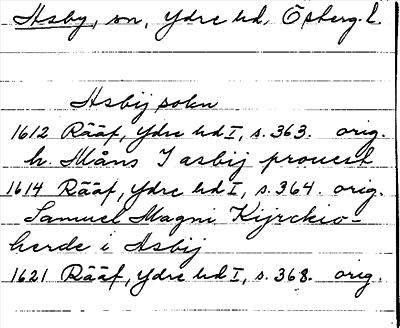 Asby, sn, Ydre hd, Östergl.
Asbij sokn
1612 Rääf, Ydre hd I, s. 363. orig.
h. Måns I asbij prouest
1614 Rääf, Ydre hd I, s. 364. orig.
Samuel Magni Kijrckio-
herde i Asbij
1621 Rääf, Ydre hd I, s. 368. orig.